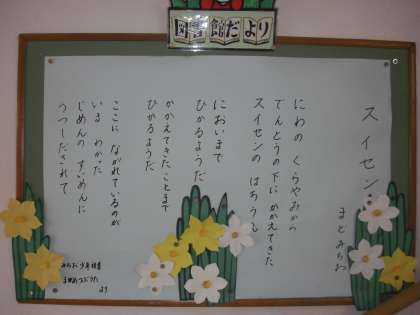 図書館だより
スイセン
まど みちお
にわの くらやみから
でんとうの下に かかえてきた
スイセンの はちうえ
においまで
ひかるようだ
かかえてきた ことまで
ひかるようだ
ここに ながれているのが
いま わかった
じめんの すいめんに
うつしだされて
みちお少年詩集
まめつぶうた
より